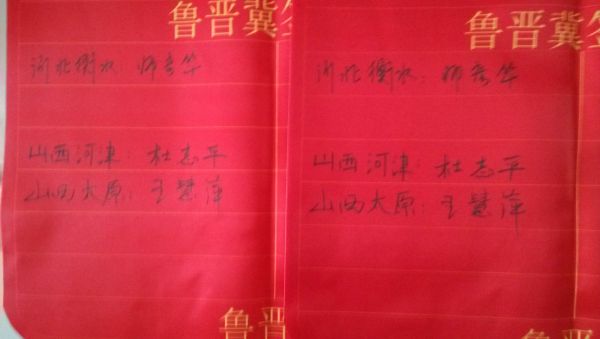 鲁晋冀
河北衡水：师秀华
山西河津：杜志平
山西太原：王慧萍
鲁晋
鲁晋冀签
河北衡水：师秀华
山西河津：杜志平
山西太原：王慧萍
鲁晋冀